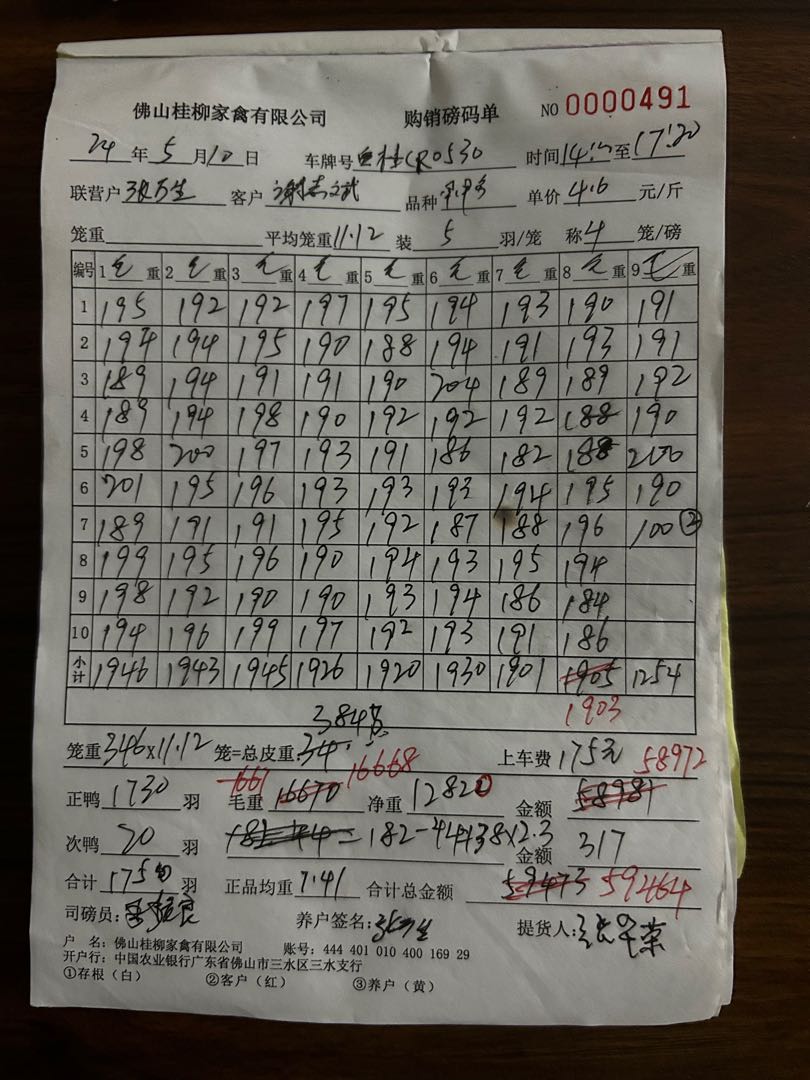 佛山桂柳家禽有限公司 购销磅码单 NO 0000491
24 年 5 月 10 日 车牌号 CR0530 时间 至 17:20
联营户 张万生 客户 品种 单价 4.6 元/斤
笼重 平均笼重 11.12 装 5 羽/笼 称 4 笼/磅
编号 1 毛 重 2 毛 重 3 毛 重 4 毛 重 5 毛 重 6 毛 重 7 毛 重 8 毛 重 9 毛 重
1 195 192 192 197 195 194 193 190 191
2 194 194 195 190 188 194 191 193 191
3 189 194 191 191 190 204 189 189 192
4 189 194 198 190 192 192 192 188 190
5 198 200 197 193 191 186 182 188 200
6 201 195 196 193 193 193 194 195 190
7 189 191 191 195 192 187 188 196 100 ②
8 199 195 196 190 194 193 195 194
9 198 192 190 190 193 194 186 184
10 194 196 199 197 192 193 191 186
小计 1946 1943 1945 1926 1920 1930 1901 1905 1254
1903
笼重 346×11.12 笼=总皮重 上车费 175元 58972
1667 16668
正鸭 1730 羽 毛重 16670 净重 12820 金额 58981
次鸭 20 羽 182-44=138×2.3 金额 317
合计 1750 羽 正品均重 7.41 合计总金额 59473 59464
司磅员： 养户签名： 提货人：
户 名：佛山桂柳家禽有限公司 账号：444 401 010 400 169 29
开户行：中国农业银行广东省佛山市三水区三水支行
①存根（白） ②客户（红） ③养户（黄）